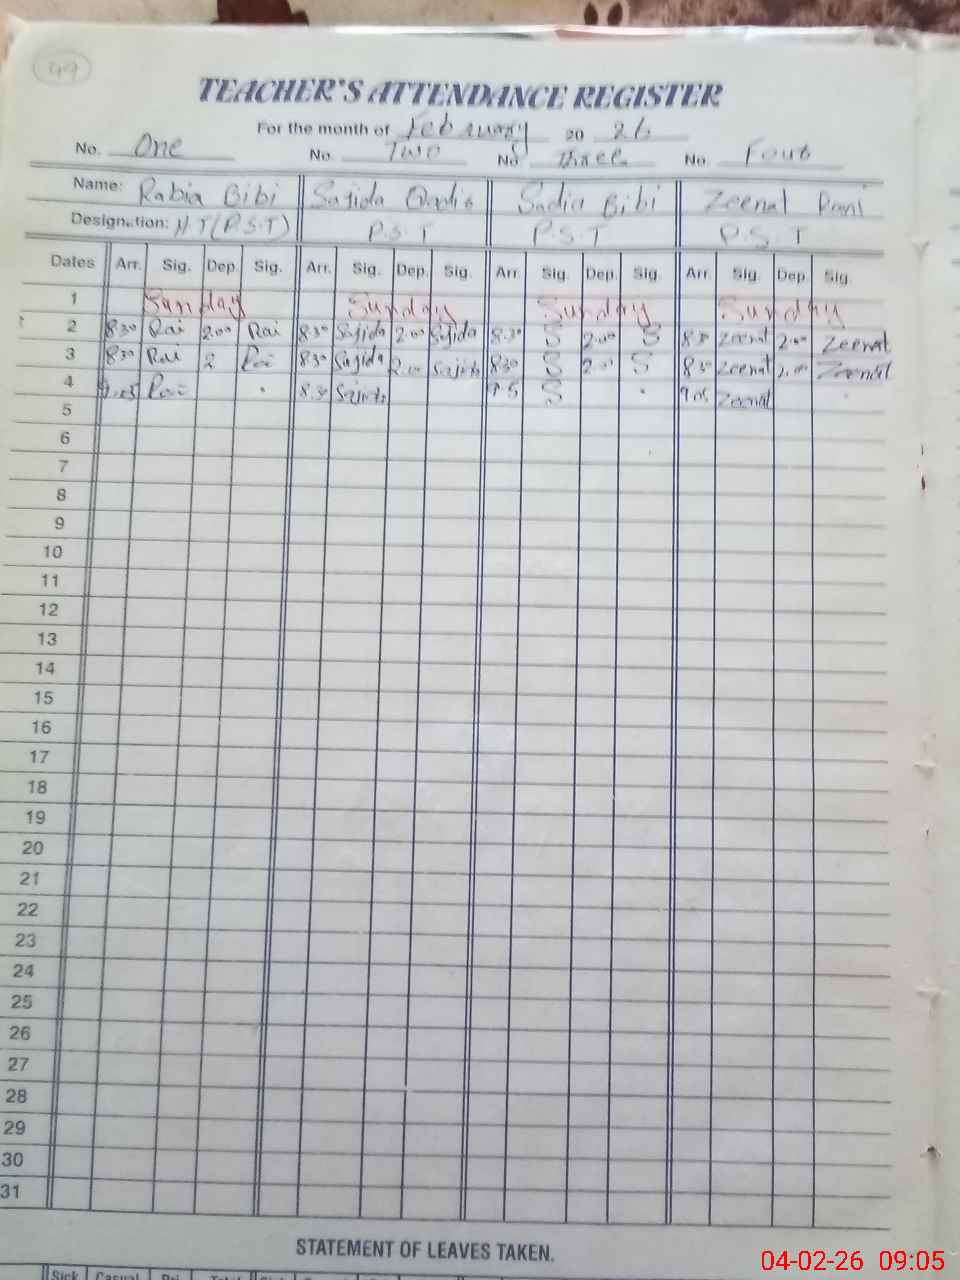 49
TEACHER'S ATTENDANCE REGISTER
For the month of February 20 26
No. One No. Two No. Three No. Four
Name: Rabia Bibi Sajida Qadir Sadia Bibi Zeenat Rani
Designation: H.T(P.S.T) P.S.T P.S.T P.S.T
Dates Arr. Sig. Dep. Sig. Arr. Sig. Dep. Sig. Arr. Sig. Dep. Sig. Arr. Sig. Dep. Sig.
1 Sunday Sunday Sunday Sunday
2 8:30 Rai 2.00 Rai 8:30 Sajida 2.00 Sajida 8:30 S 2.00 S 8:30 Zeenat 2.00 Zeenat
3 8:30 Rai 2 Rai 8:30 Sajida 2.00 Sajida 8:30 S 2.00 S 8:30 Zeenat 2.00 Zeenat
4 9.05 Rai 8:30 Sajida 9 5 S 9.05 Zeenat
5
6
7
8
9
10
11
12
13
14
15
16
17
18
19
20
21
22
23
24
25
26
27
28
29
30
31
STATEMENT OF LEAVES TAKEN.
Sick Casual Total
04-02-26 09:05